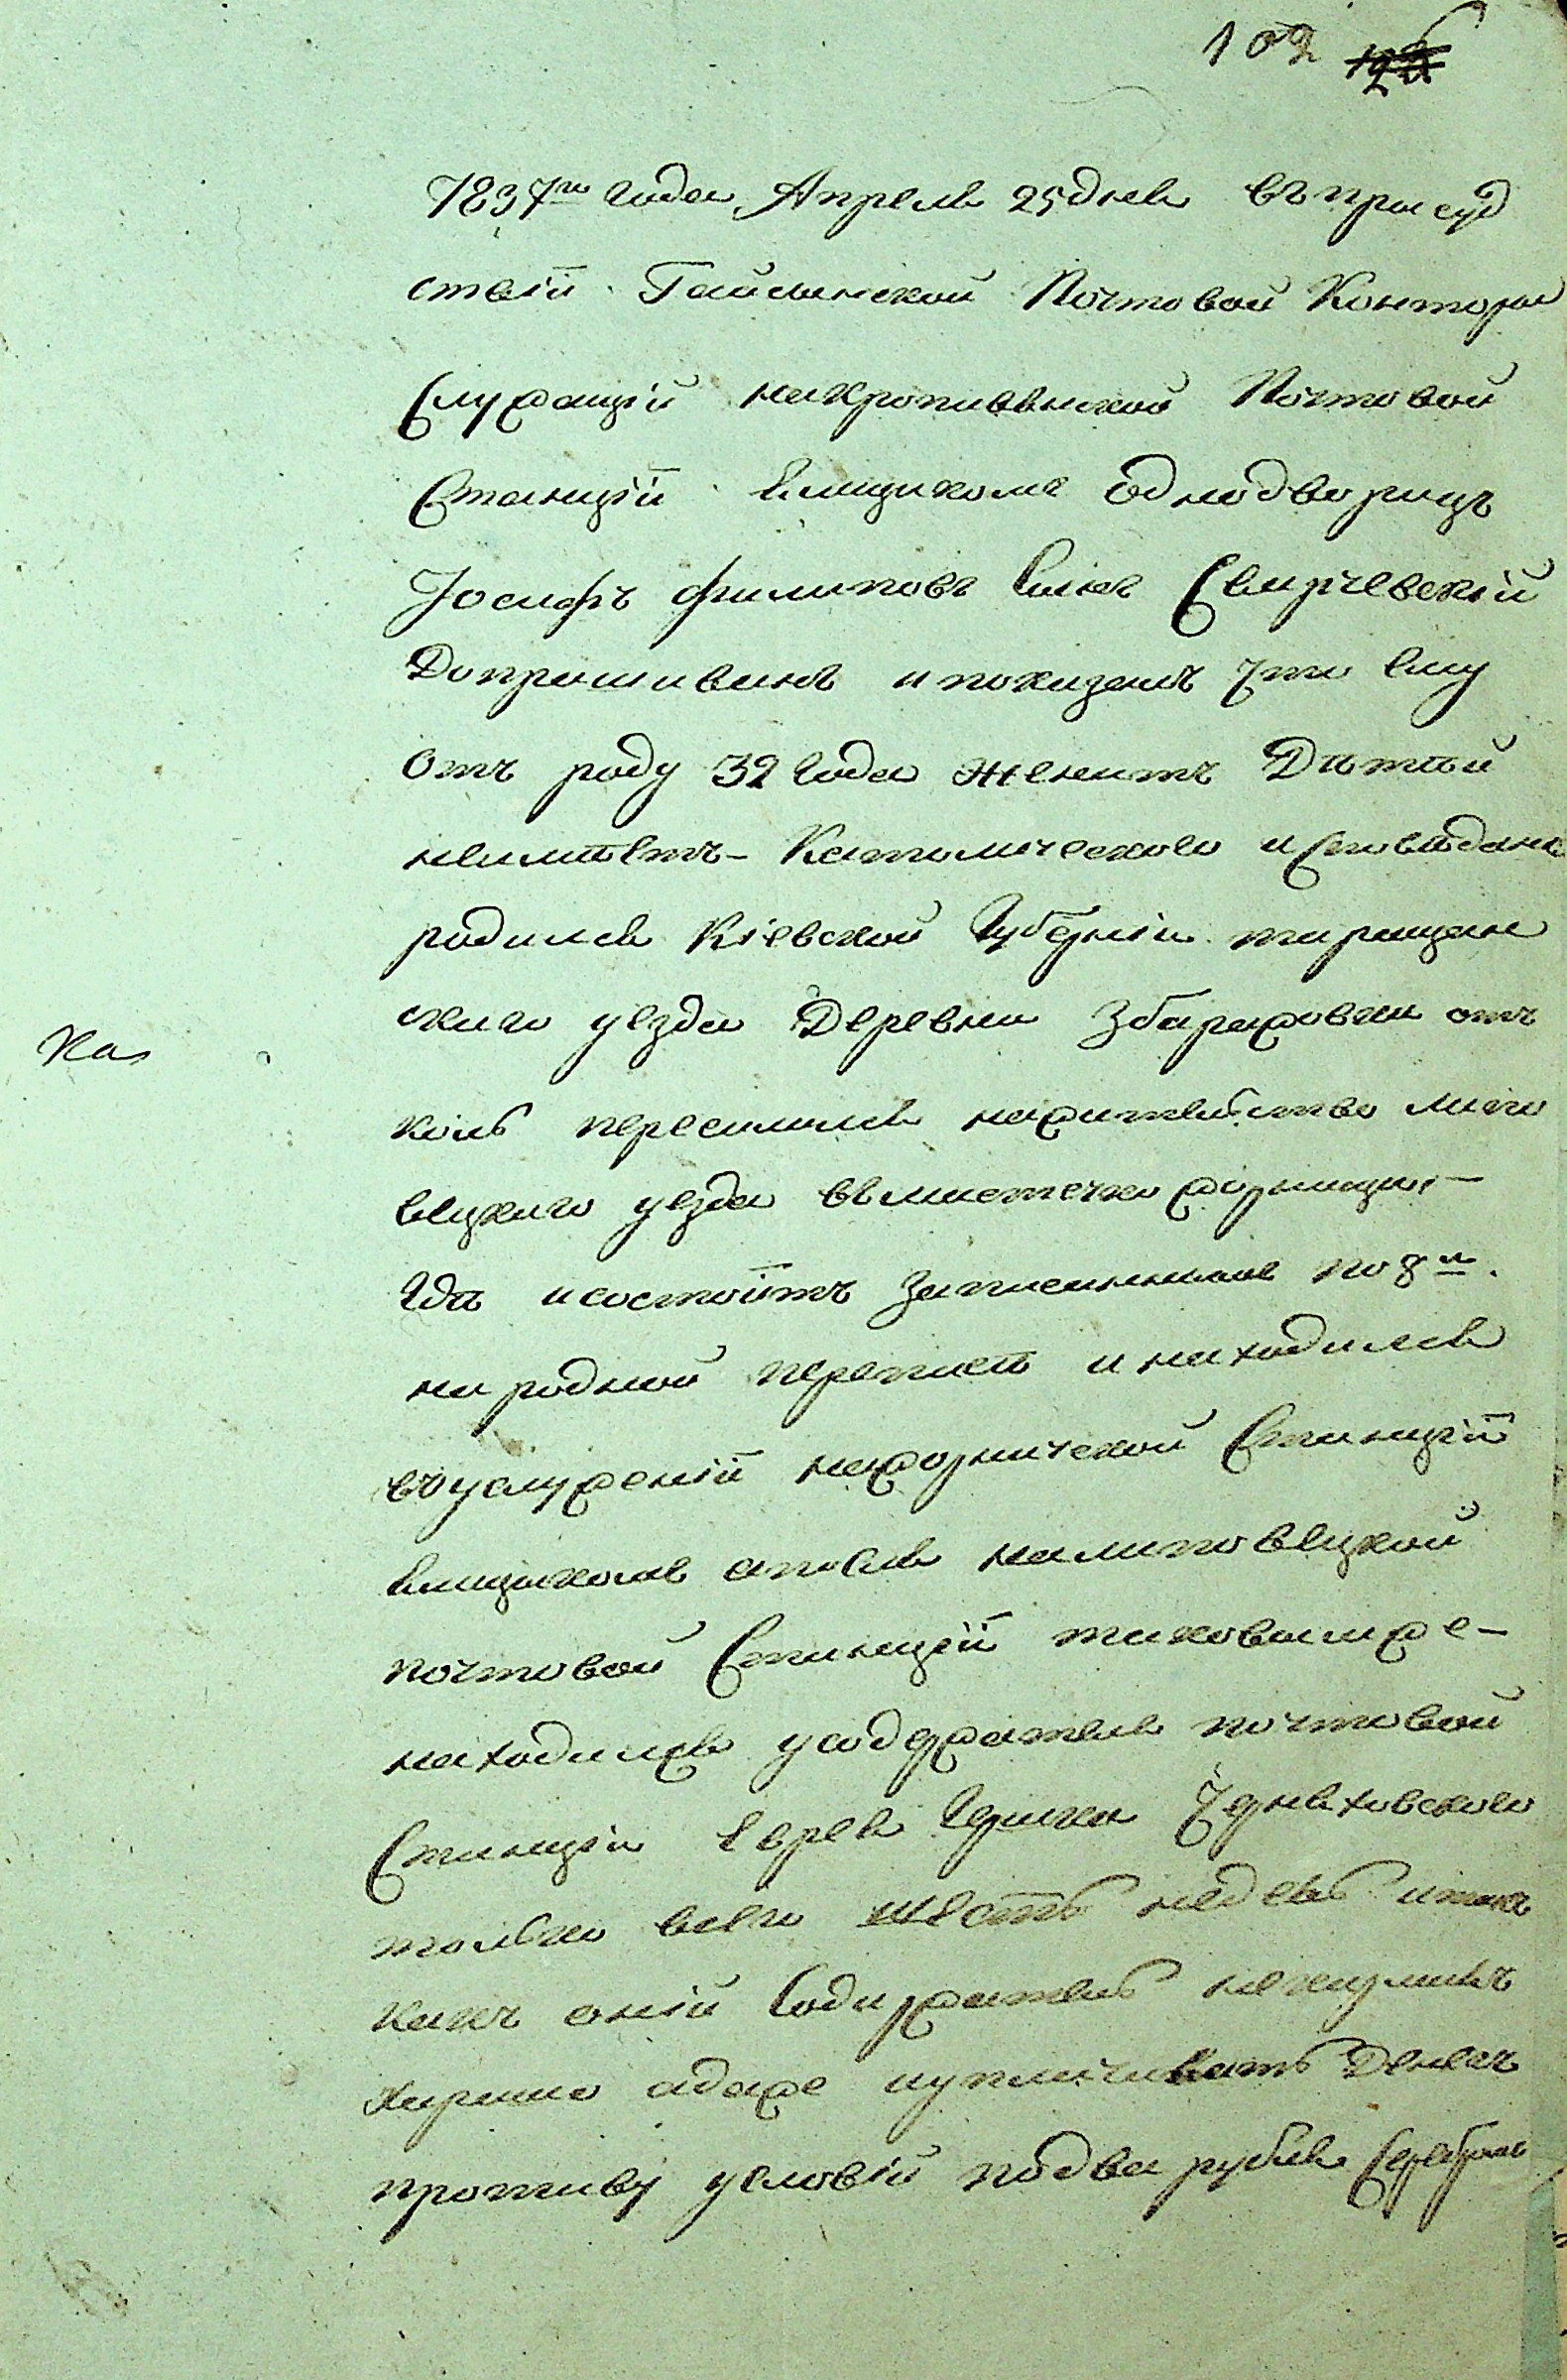 102 126
1837го года Апреля 25 дня въ присуд
ствіи Гайсинской Почтовой Конторы
Служащій накропивьнской Почтовой
Станціи Ямщикомъ Однодворецъ
Іосифъ Филиповъ Сынъ Свирчевскій
Допрашиванъ и показалъ что ему
отъ роду 32 года женатъ Дѣтѣй
неимѣетъ – Католического исповѣдания
родился Кіевской Губерніи таращан
скаго уезда Деревни Збараховки отъ
коль переселился нажительство липо
вецкаго уезда въмистечко жорнище, –
Гдѣ исостоитъ записаннымъ по 8й
народной переписѣ и находился
воуслуженіи нажорнической Станціи
Ямщикомъ апосля налиповецкой
почтовой Станціи таковымже –
находился усодержателя почтовой
Станціи Еврея Гершка Черняховского
только всего шесть недель итакъ
какъ оній Содиржатель некормилъ
харашо адаже иуплачивать Денегъ
противу условій подва рубля Серебромъ
Ка